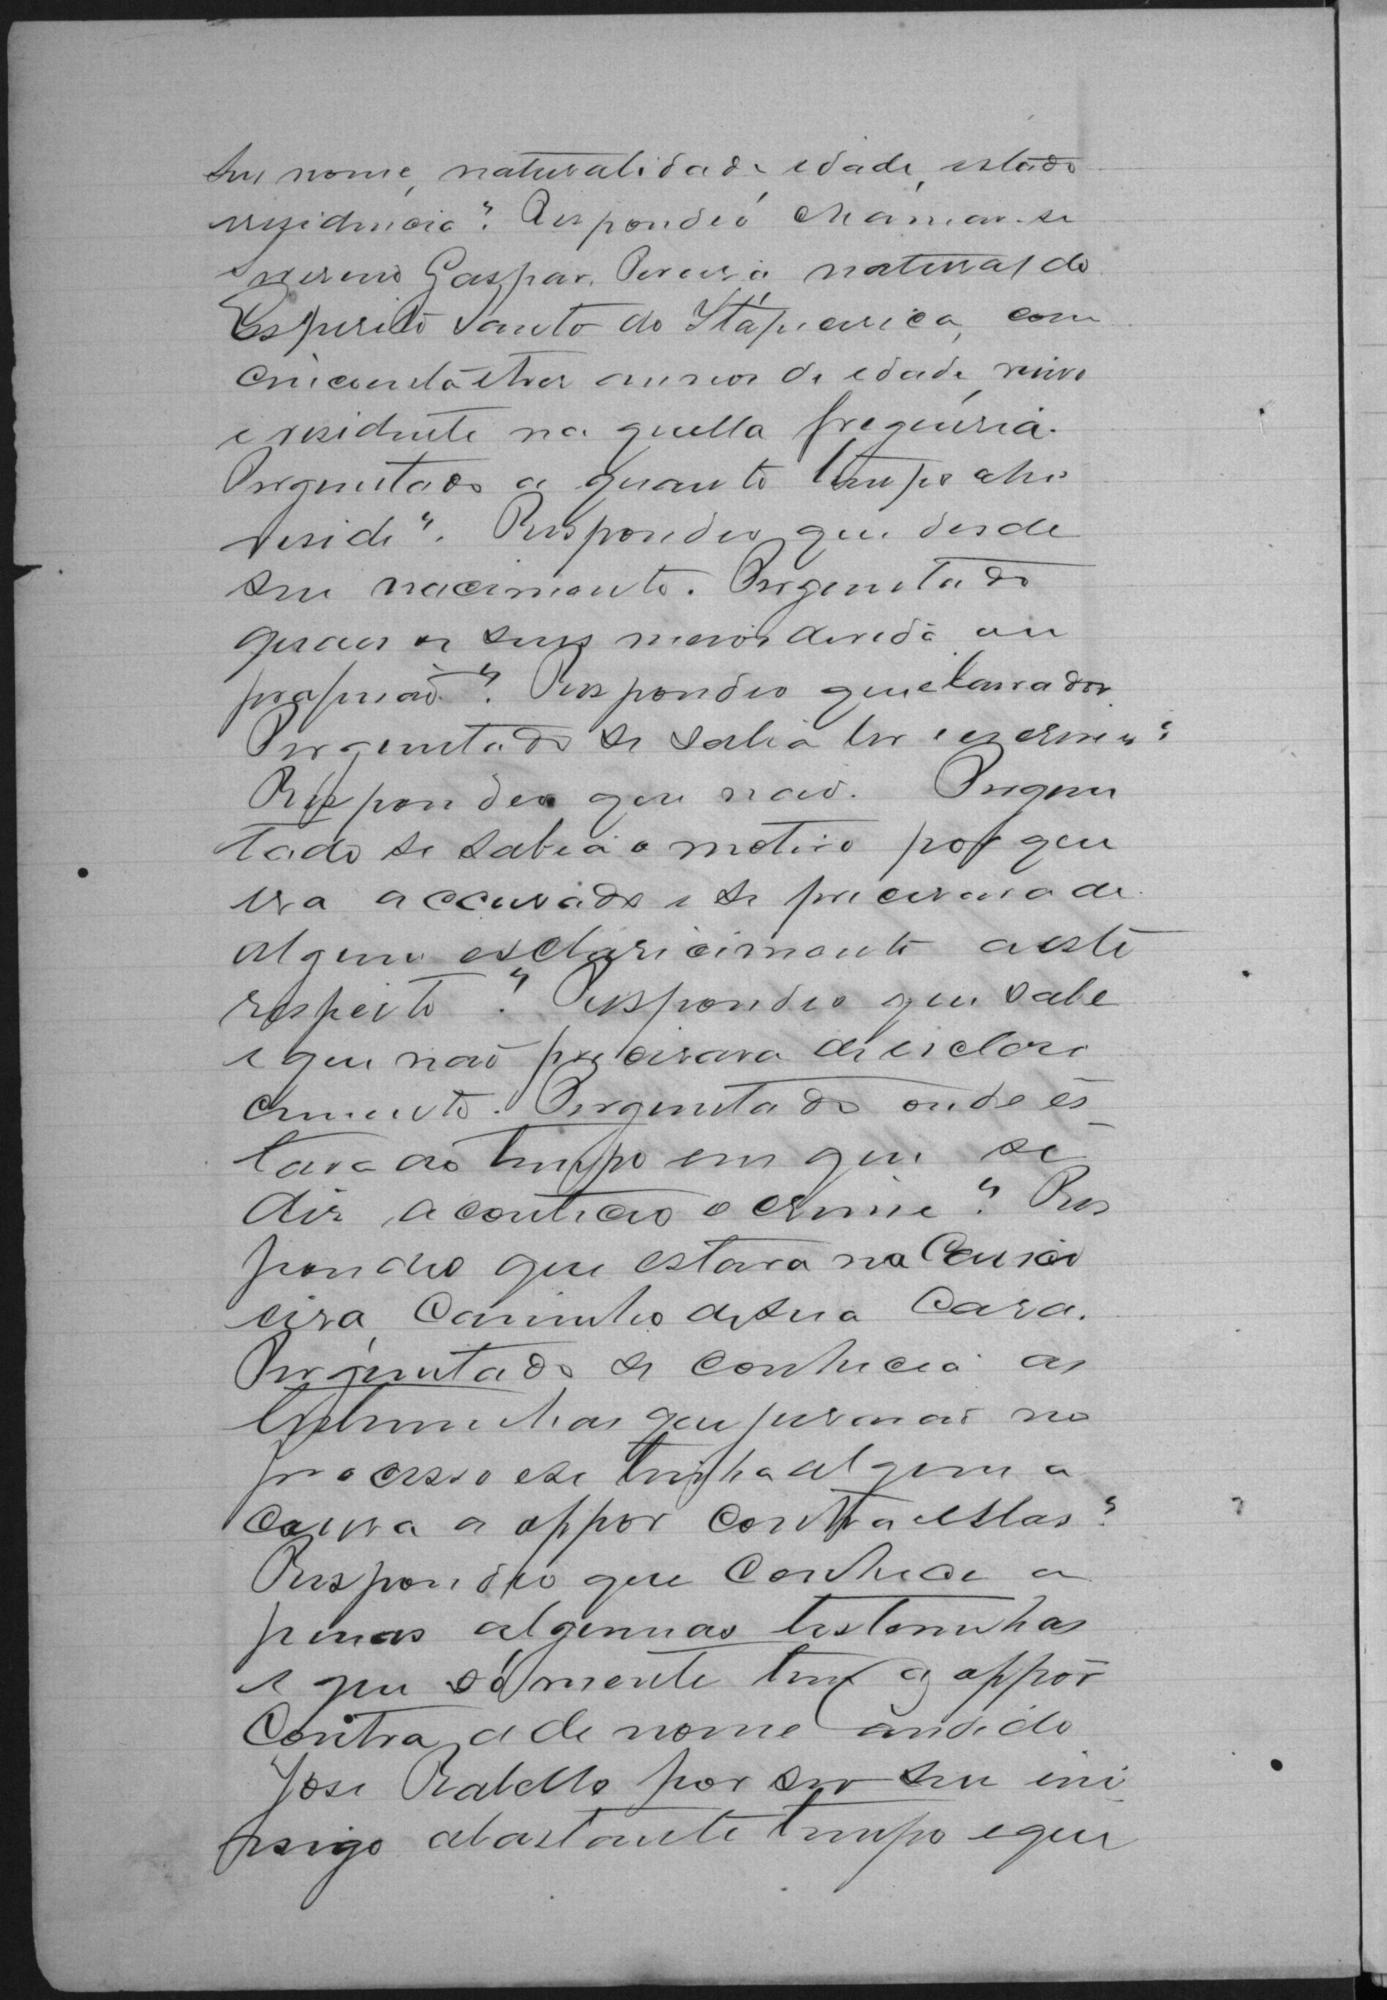 seu nome, naturalidade edade, estado
residencia? Respondeo chamar-se
Gaspar Pereira natural do
Espirito Santo do Itapecerica, com
cincoenta e tres annos de edade, viuvo
e residente na quella freguesia.
Perguntado a quanto tempo ahi
reside? Respondeo que desde
seu nacimento. Perguntado
quaes os seus meios de vida ou
profissão? Respondeo que é lavrador.
Perguntado se sabia ler e escrever?
Respondeo que não. Pergun
tado se sabia o motivo por que
era accusado e se precisava de
algum esclaricimento a este
respeito? Respondeo que sabe
e que não precisava de esclare
cimento. Perguntado onde es
tava ao tempo em que se
diz aconteceo o crime? Res
pondeo que estava na
caminho de sua casa.
Perguntado se conhecia as
testemunhas que juraram no
processo e se tinha alguma
cousa a oppor contra ellas?
Respondeo que conhece a
penas algumas testemunhas
e que sómente tem a oppor
contra a de nome Candido
José Rabello por ser seu ini
migo a bastante tempo e que